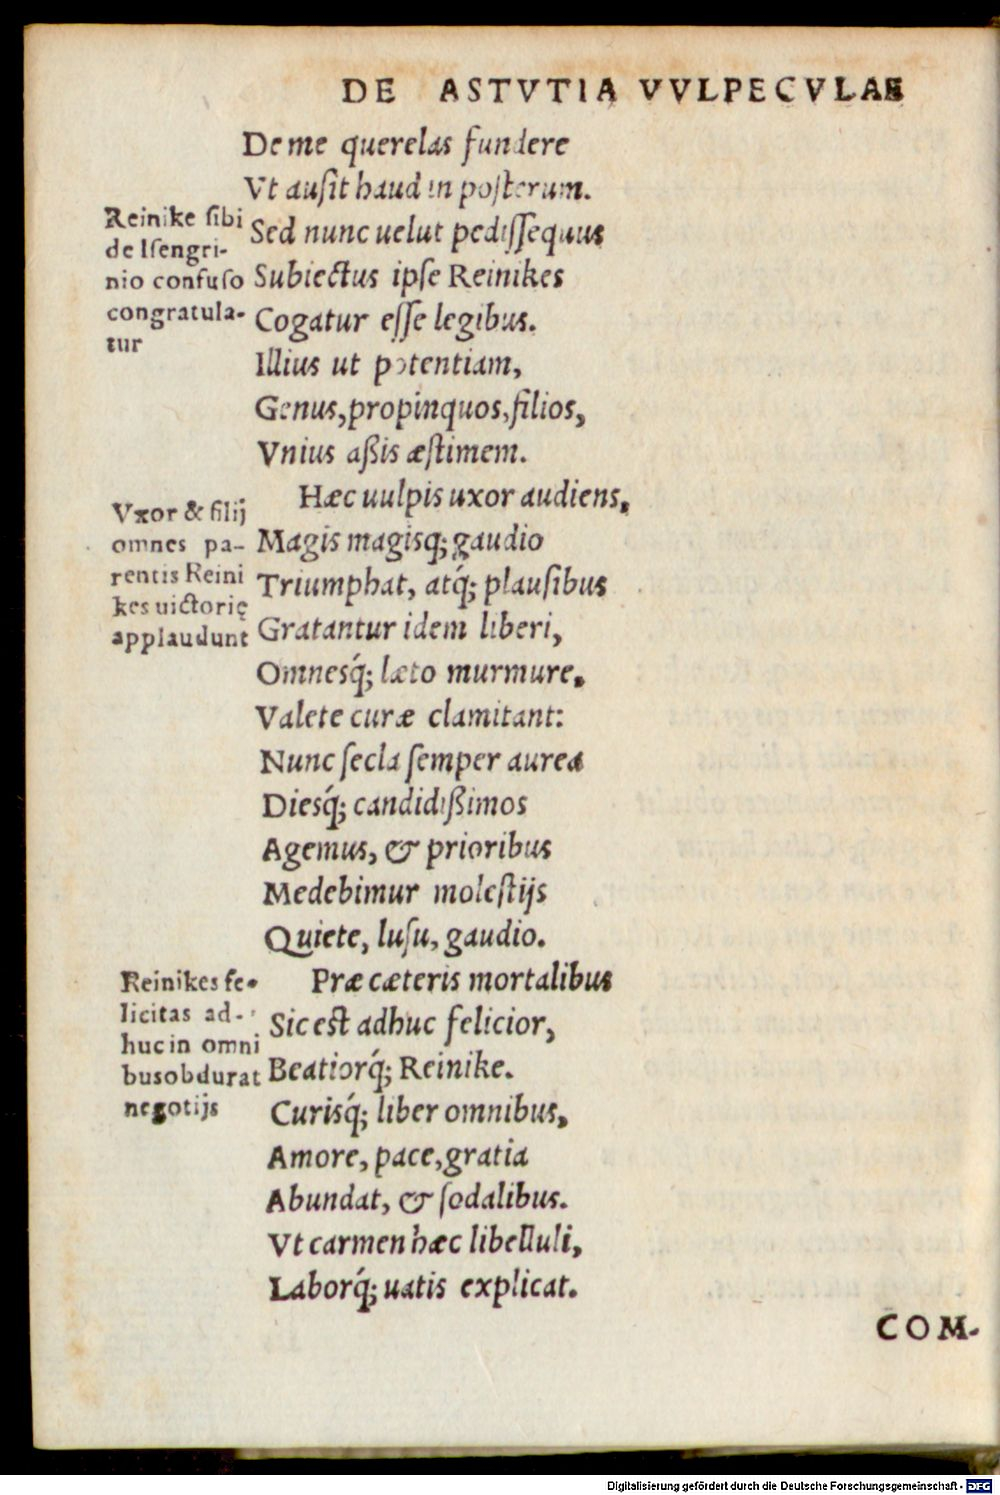 DE ASTVTIA VVLPECVLAE
De me querelas fundere
Vt ausit haud in posterum.
Reinike sibi
de Isengri-
nio confuso
congratula-
tur
Sed nunc uelut pedissequus
Subiectus ipse Reinikes
Cogatur esse legibus.
Illius ut potentiam,
Genus, propinquos, filios,
Vnius aßis æstimem.
Hæc uulpis uxor audiens,
Vxor & filij
omnes pa-
rentis Reini
kes uictorię
applaudunt
Magis magisq; gaudio
Triumphat, atq́; plausibus
Gratantur idem liberi,
Omnesq́; læto murmure,
Valete curæ clamitant:
Nunc secla semper aurea
Diesq́; candidißimos
Agemus, & prioribus
Medebimur molestijs
Quiete, lusu, gaudio.
Præ cæteris mortalibus
Reinikes fe-
licitas ad-
huc in omni
bus obdurat
negotijs
Sic est adhuc felicior,
Beatiorq́; Reinike.
Curisq́; liber omnibus,
Amore, pace, gratia
Abundat, & sodalibus.
Vt carmen hæc libelluli,
Laborq́; uatis explicat.
COM-
Digitalisierung gefördert durch die Deutsche Forschungsgemeinschaft - DFG